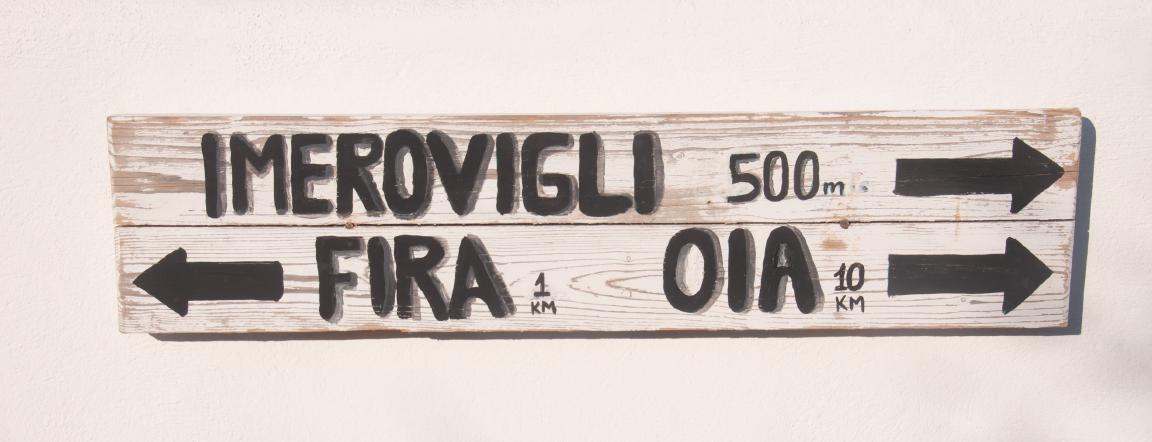 IMEROVIGLI 500m
FIRA 1 KM OIA 10 KM